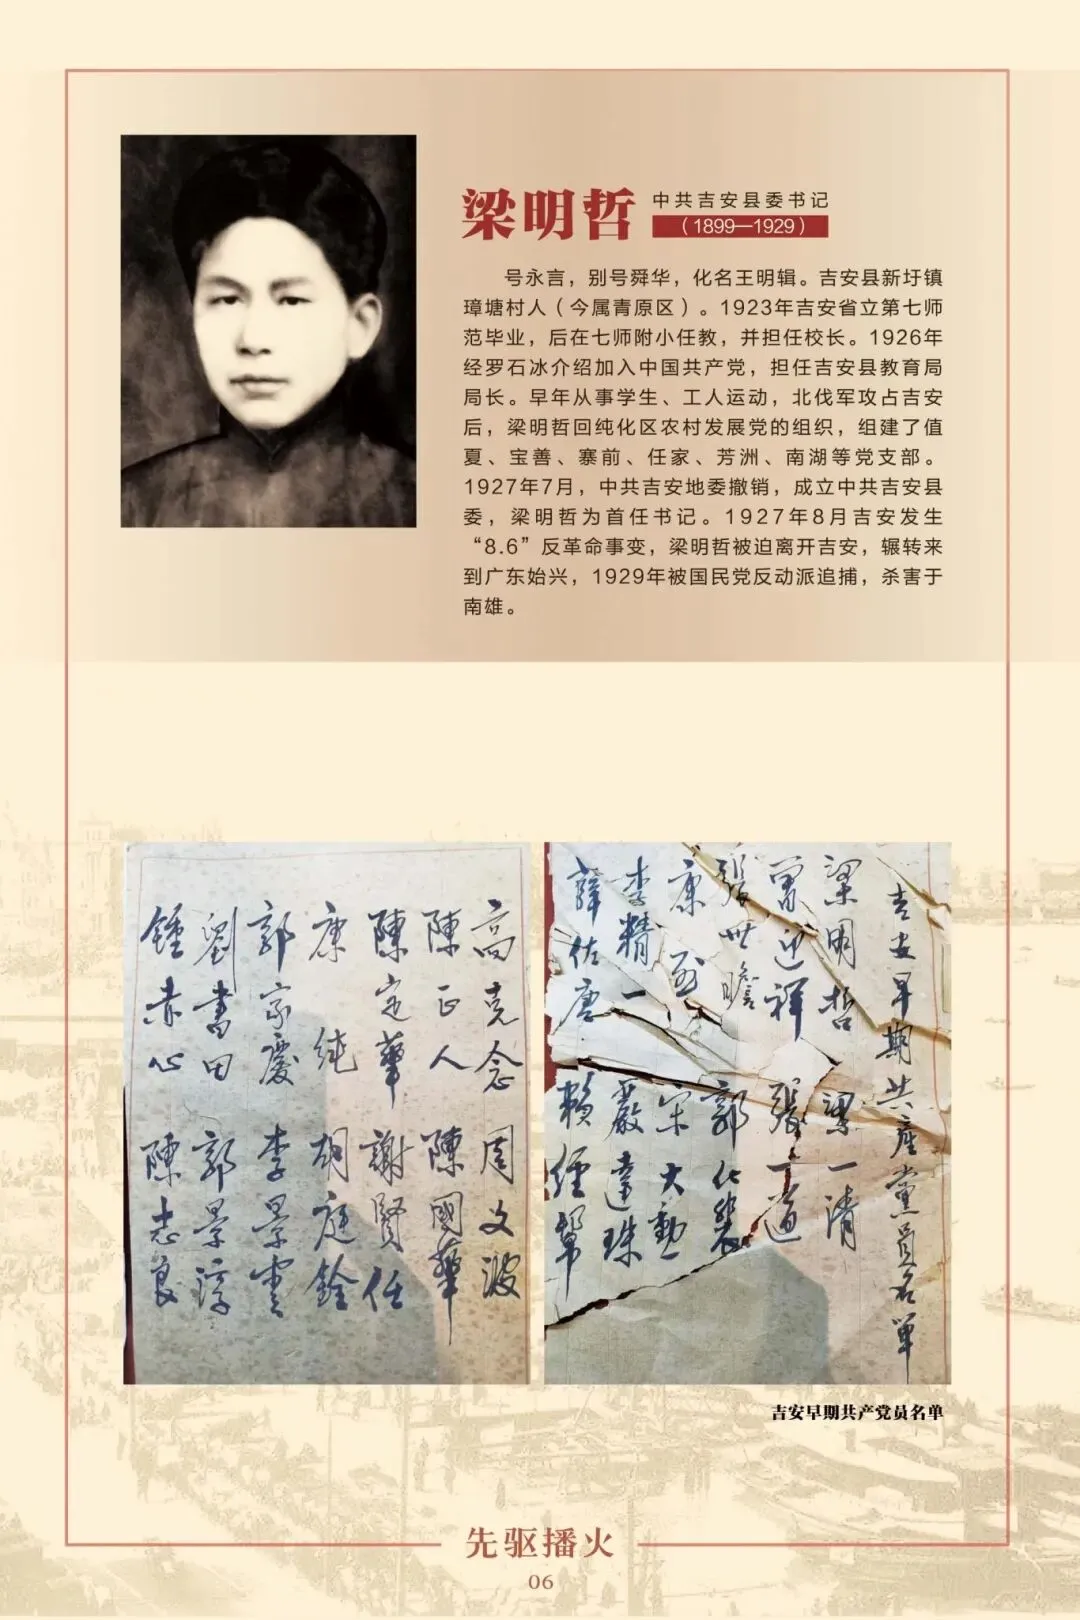 梁明哲
中共吉安县委书记
（1899—1929）
号永言，别号舜华，化名王明辑。吉安县新圩镇
璋塘村人（今属青原区）。1923年吉安省立第七师
范毕业，后在七师附小任教，并担任校长。1926年
经罗石冰介绍加入中国共产党，担任吉安县教育局
局长。早年从事学生、工人运动，北伐军攻占吉安
后，梁明哲回纯化区农村发展党的组织，组建了值
夏、宝善、寨前、任家、芳洲、南湖等党支部。
1927年7月，中共吉安地委撤销，成立中共吉安县
委，梁明哲为首任书记。1927年8月吉安发生
“8.6”反革命事变，梁明哲被迫离开吉安，辗转来
到广东始兴，1929年被国民党反动派追捕，杀害于
南雄。
吉安早期共产党員名单
梁明哲 梁一清
迎祥 張一道
張世瞻 郭化裴
康 宋大勳
李精一 嚴達珠
薛佐唐 賴經邦
高克念 周文波
陳正人 陳國華
陳定華 謝賢任
康純 胡庭銓
郭家慶 李景雲
劉書田 郭景淳
鍾赤心 陳志良
吉安早期共产党员名单
先驱播火
06